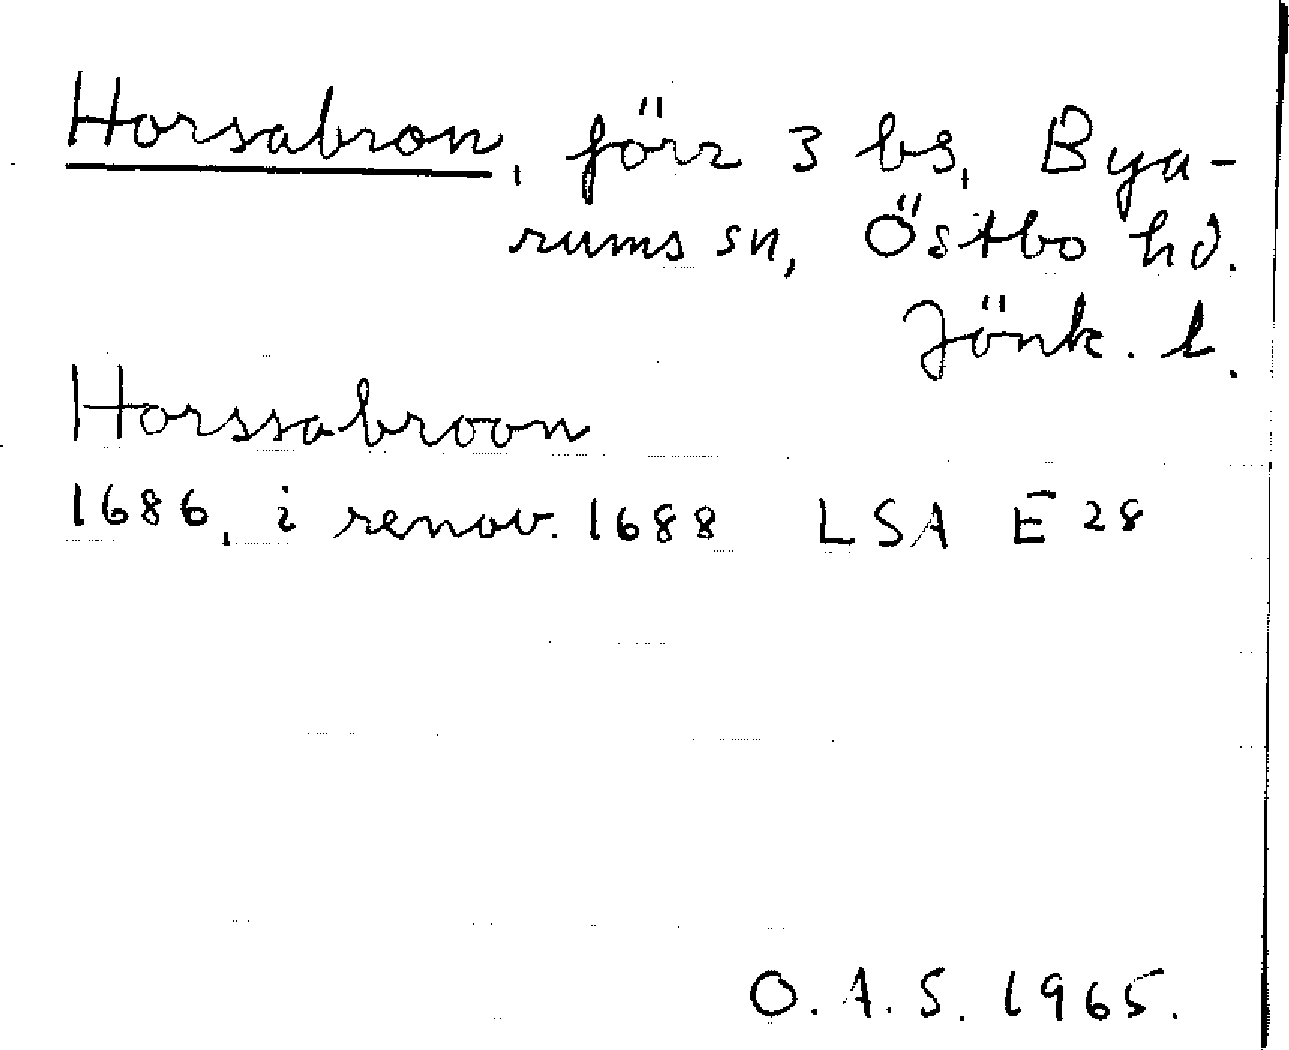 Horsabron, förr 3 bs, Bya-
rums sn, Östbo hd.
Jönk. l.
Horssabroon
1686, i renov. 1688 LSA E 28
O. A. S. 1965.